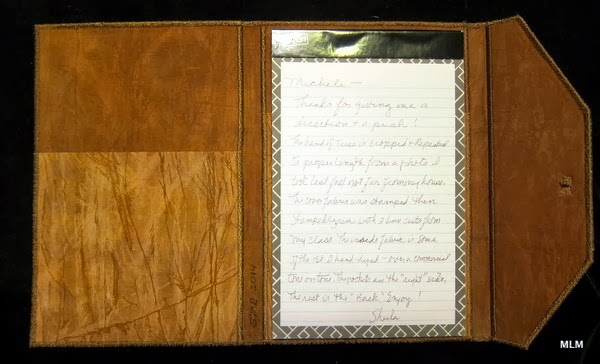 Michele —
Thanks for giving me a
direction & a push!
The band of trees is cropped & repeated
to proper length from a photo I
took last fall not far from my house.
The cover fabric was stamped then
stamped again with 2 lino cuts from
my class. The inside fabric is some
of the 1st I hand-dyed - over a commercial
tone on tone. The pockets are the "right" side,
the rest is the "back". Enjoy!
Sheila
2014
MLM